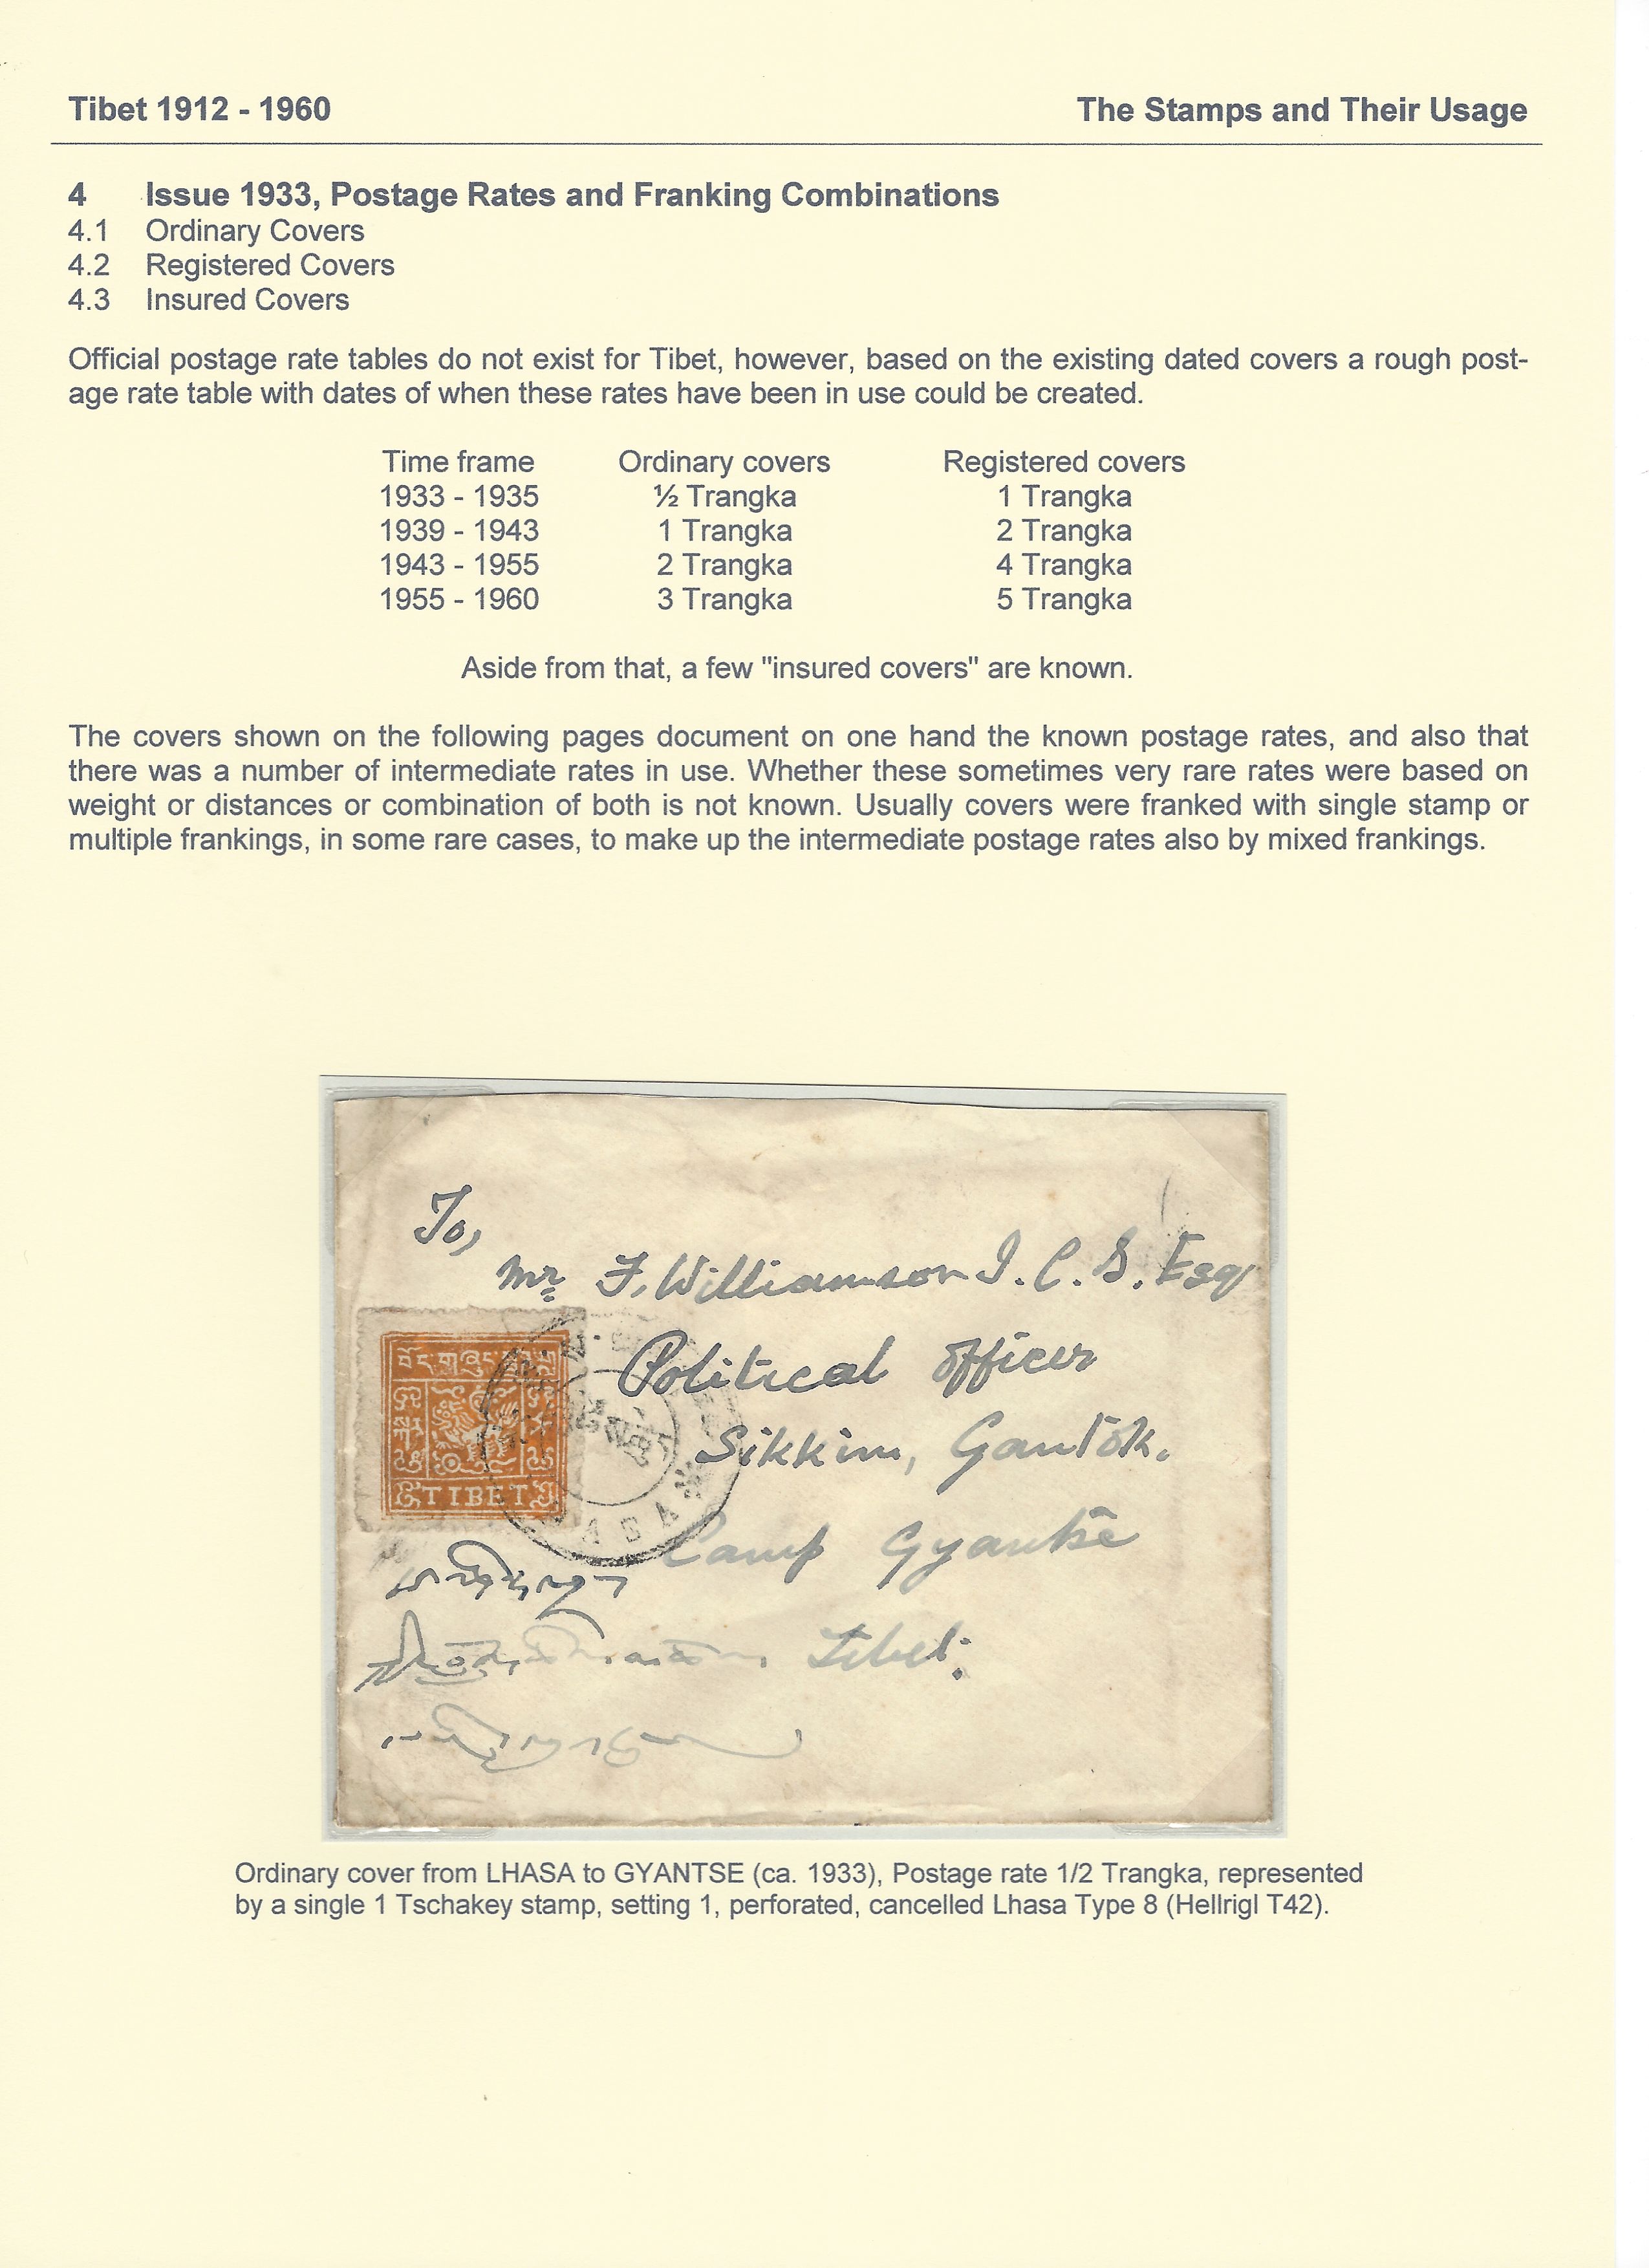 Tibet 1912 - 1960 The Stamps and Their Usage
4 Issue 1933, Postage Rates and Franking Combinations
4.1 Ordinary Covers
4.2 Registered Covers
4.3 Insured Covers
Official postage rate tables do not exist for Tibet, however, based on the existing dated covers a rough post-
age rate table with dates of when these rates have been in use could be created.
Time frame Ordinary covers Registered covers
1933 - 1935 ½ Trangka 1 Trangka
1939 - 1943 1 Trangka 2 Trangka
1943 - 1955 2 Trangka 4 Trangka
1955 - 1960 3 Trangka 5 Trangka
Aside from that, a few "insured covers" are known.
The covers shown on the following pages document on one hand the known postage rates, and also that
there was a number of intermediate rates in use. Whether these sometimes very rare rates were based on
weight or distances or combination of both is not known. Usually covers were franked with single stamp or
multiple frankings, in some rare cases, to make up the intermediate postage rates also by mixed frankings.
To,
Mr F. Williamson I. C. S. Esq
Political officer
Sikkim, Gantok.
Camp Gyantse
Tibet.
TIBET
Ordinary cover from LHASA to GYANTSE (ca. 1933), Postage rate 1/2 Trangka, represented
by a single 1 Tschakey stamp, setting 1, perforated, cancelled Lhasa Type 8 (Hellrigl T42).